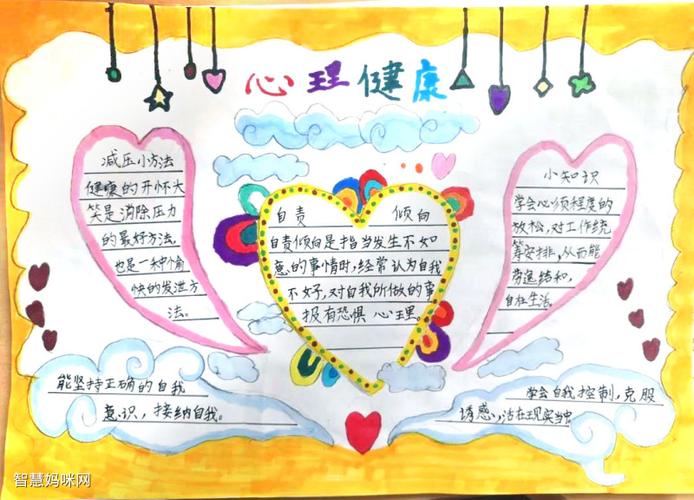 心理健康
减压小方法
健康的开怀大
笑是消除压力
的最好方法,
也是一种愉
快的发泄方
法。
自责 倾向
自责倾向是指当发生不如
意的事情时,经常认为自我
不好,对自我所做的事
报有恐惧 心理。
小知识
学会心烦程度的
放松,对工作统
筹安排,从而能
劳逸结和,
自在生活。
能坚持正确的自我
意识,接纳自我。
学会自我控制,克服
诱惑,活在现实当中
智慧妈咪网